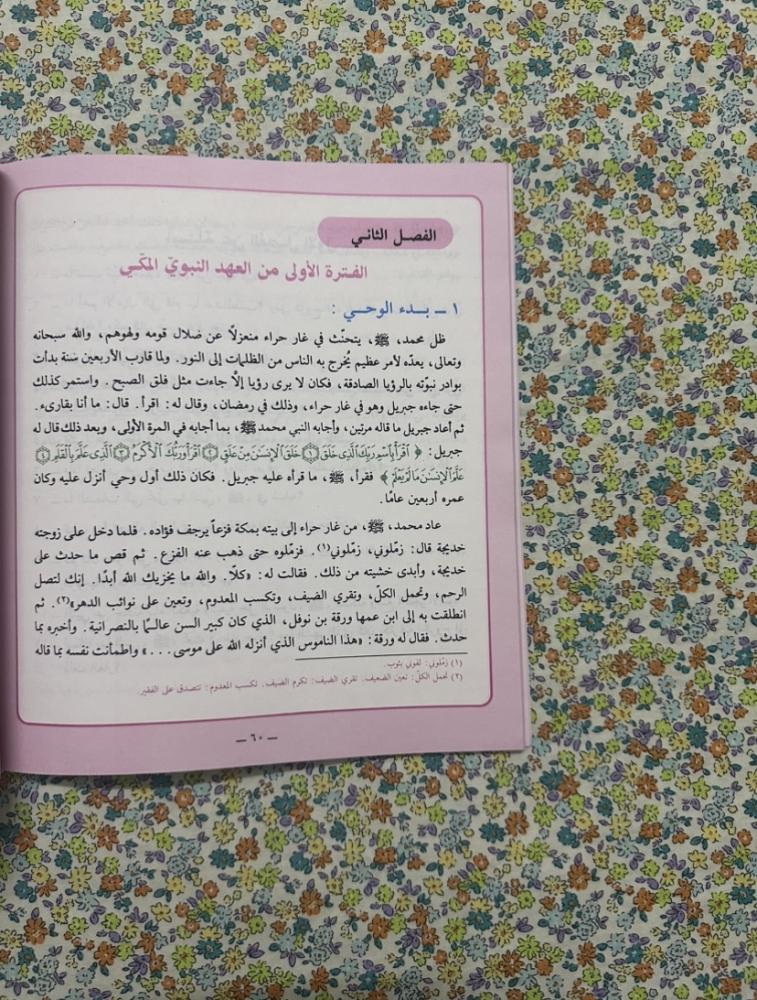 الفصل الثاني
الفترة الأولى من العهد النبويّ المكّي
١ ــ بدء الوحي :
ظل محمد، ﷺ، يتحنّث في غار حراء منعزلاً عن ضلال قومه ولهوهم، والله سبحانه
وتعالى، يعدّه لأمر عظيم يُخرج به الناس من الظلمات إلى النور. ولما قارب الأربعين سنة بدأت
بوادر نبوّته بالرؤيا الصادقة، فكان لا يرى رؤيا إلّا جاءت مثل فلق الصبح. واستمر كذلك
حتى جاءه جبريل وهو في غار حراء، وذلك في رمضان، وقال له: اقرأ. قال: ما أنا بقارىء.
ثم أعاد جبريل ما قاله مرتين، وأجابه النبي محمد ﷺ، بما أجابه في المرة الأولى، وبعد ذلك قال له
جبريل: ﴿ ٱقْرَأْ بِٱسْمِ رَبِّكَ ٱلَّذِى خَلَقَ ١ خَلَقَ ٱلْإِنسَٰنَ مِنْ عَلَقٍ ٢ ٱقْرَأْ وَرَبُّكَ ٱلْأَكْرَمُ ٣ ٱلَّذِى عَلَّمَ بِٱلْقَلَمِ ٤
عَلَّمَ ٱلْإِنسَٰنَ مَا لَمْ يَعْلَمْ ﴾ فقرأ، ﷺ، ما قرأه عليه جبريل. فكان ذلك أول وحي أنزل عليه وكان
عمره أربعين عامًا.
عاد محمد، ﷺ، من غار حراء إلى بيته بمكة فزعاً يرجف فؤاده. فلما دخل على زوجته
خديجة قال: زمّلوني، زمّلوني(١). فزمّلوه حتى ذهب عنه الفزع. ثم قص ما حدث على
خديجة، وأبدى خشيته من ذلك. فقالت له: «كلّا. والله ما يخزيك الله أبدًا. إنك لتصل
الرحم، وتحمل الكلّ، وتقري الضيف، وتكسب المعدوم، وتعين على نوائب الدهر»(٢). ثم
انطلقت به إلى ابن عمها ورقة بن نوفل، الذي كان كبير السن عالـمـًا بالنصرانية. وأخبره بما
حدث. فقال له ورقة: «هذا الناموس الذي أنزله الله على موسى...» واطمأنت نفسه بما قاله
(١) زمّلوني: لفوني بثوب.
(٢) تحمل الكلّ: تعين الضعيف. تقري الضيف: تكرم الضيف. تكسب المعدوم: تتصدق على الفقير.
ــ ٦٠ ــ